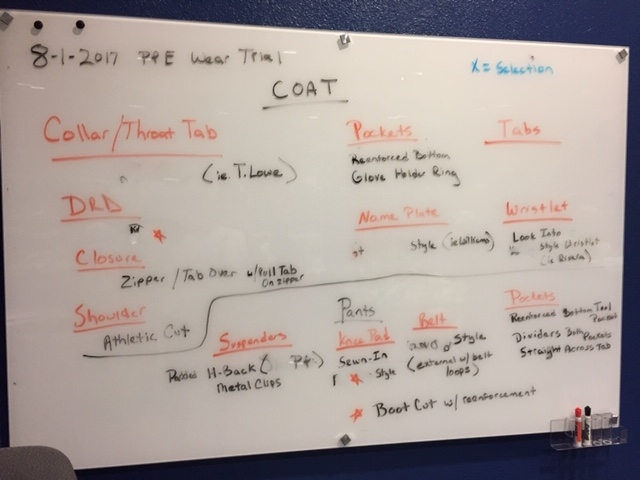 8-1-2017 PPE Wear Trial
X = Selection
COAT
Collar/Throat Tab
(ie. T. Lowe)
Pockets
Reenforced Bottom
Glove Holder Ring
Tabs
DRD
Name Plate
Style (ie Williams)
Wristlet
Look Into
Style Wristlet
(ie Rivera)
Closure
Zipper / Tab Over w/Pull Tab
On Zipper
Shoulder
Athletic Cut
Pants
Suspenders
Padded H-Back (
Metal Clips
Knee Pad
Sewn-In
Style
Belt
Style
(external w/ belt
loops)
Pockets
Reenforced Bottom Tool
Pocket
Dividers Both Pockets
Straight Across Tab
Boot Cut w/ reenforcement